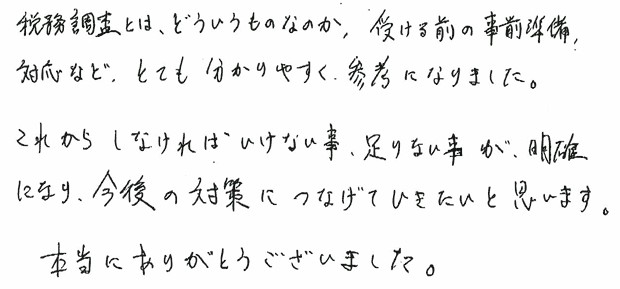 税務調査とは、どういうものなのか、受ける前の事前準備、
対応など、とても分かりやすく、参考になりました。
これからしなければいけない事、足りない事が、明確
になり、今後の対策につなげていきたいと思います。
本当にありがとうございました。